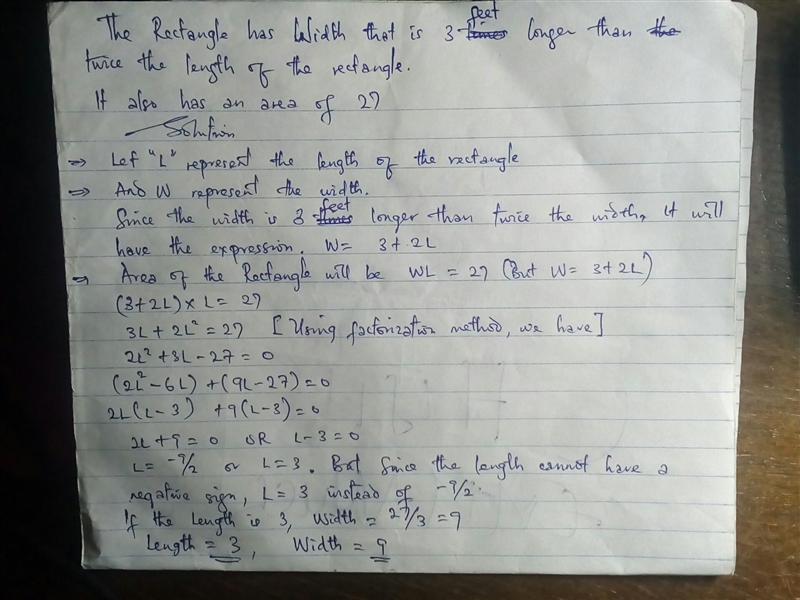 The Rectangle has Width that is 3 feet longer than
twice the length of the rectangle.
It also has an area of 27
Solution
⇒ Let "L" represent the length of the rectangle
⇒ And W represent the width.
Since the width is 3 feet longer than twice the width, it will
have the expression. W = 3+2L
⇒ Area of the Rectangle will be WL = 27 (But W = 3+2L)
(3+2L)×L = 27
3L + 2L² = 27 [Using factorization method, we have]
2L² + 3L - 27 = 0
(2L² - 6L) + (9L - 27) = 0
2L(L-3) + 9(L-3) = 0
2L + 9 = 0 OR L-3 = 0
L = -9/2 or L = 3. But since the length cannot have a
negative sign, L = 3 instead of -9/2.
If the length is 3, Width = 27/3 = 9
Length = 3, Width = 9